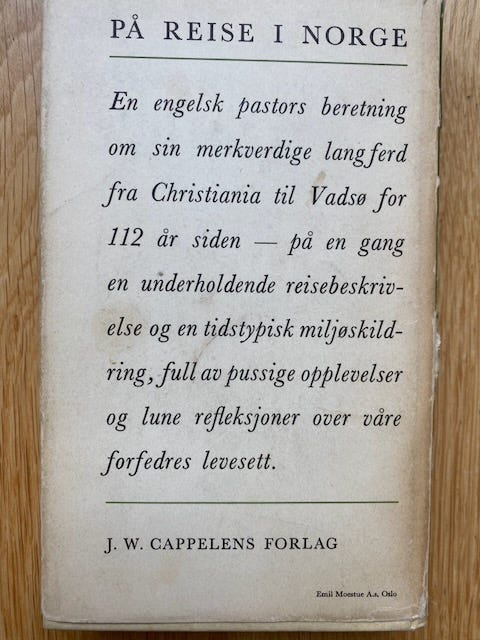 PÅ REISE I NORGE
En engelsk pastors beretning
om sin merkverdige langferd
fra Christiania til Vadsø for
112 år siden — på en gang
en underholdende reisebeskriv-
else og en tidstypisk miljøskild-
ring, full av pussige opplevelser
og lune refleksjoner over våre
forfedres levesett.
J. W. CAPPELENS FORLAG
Emil Moestue A.s, Oslo